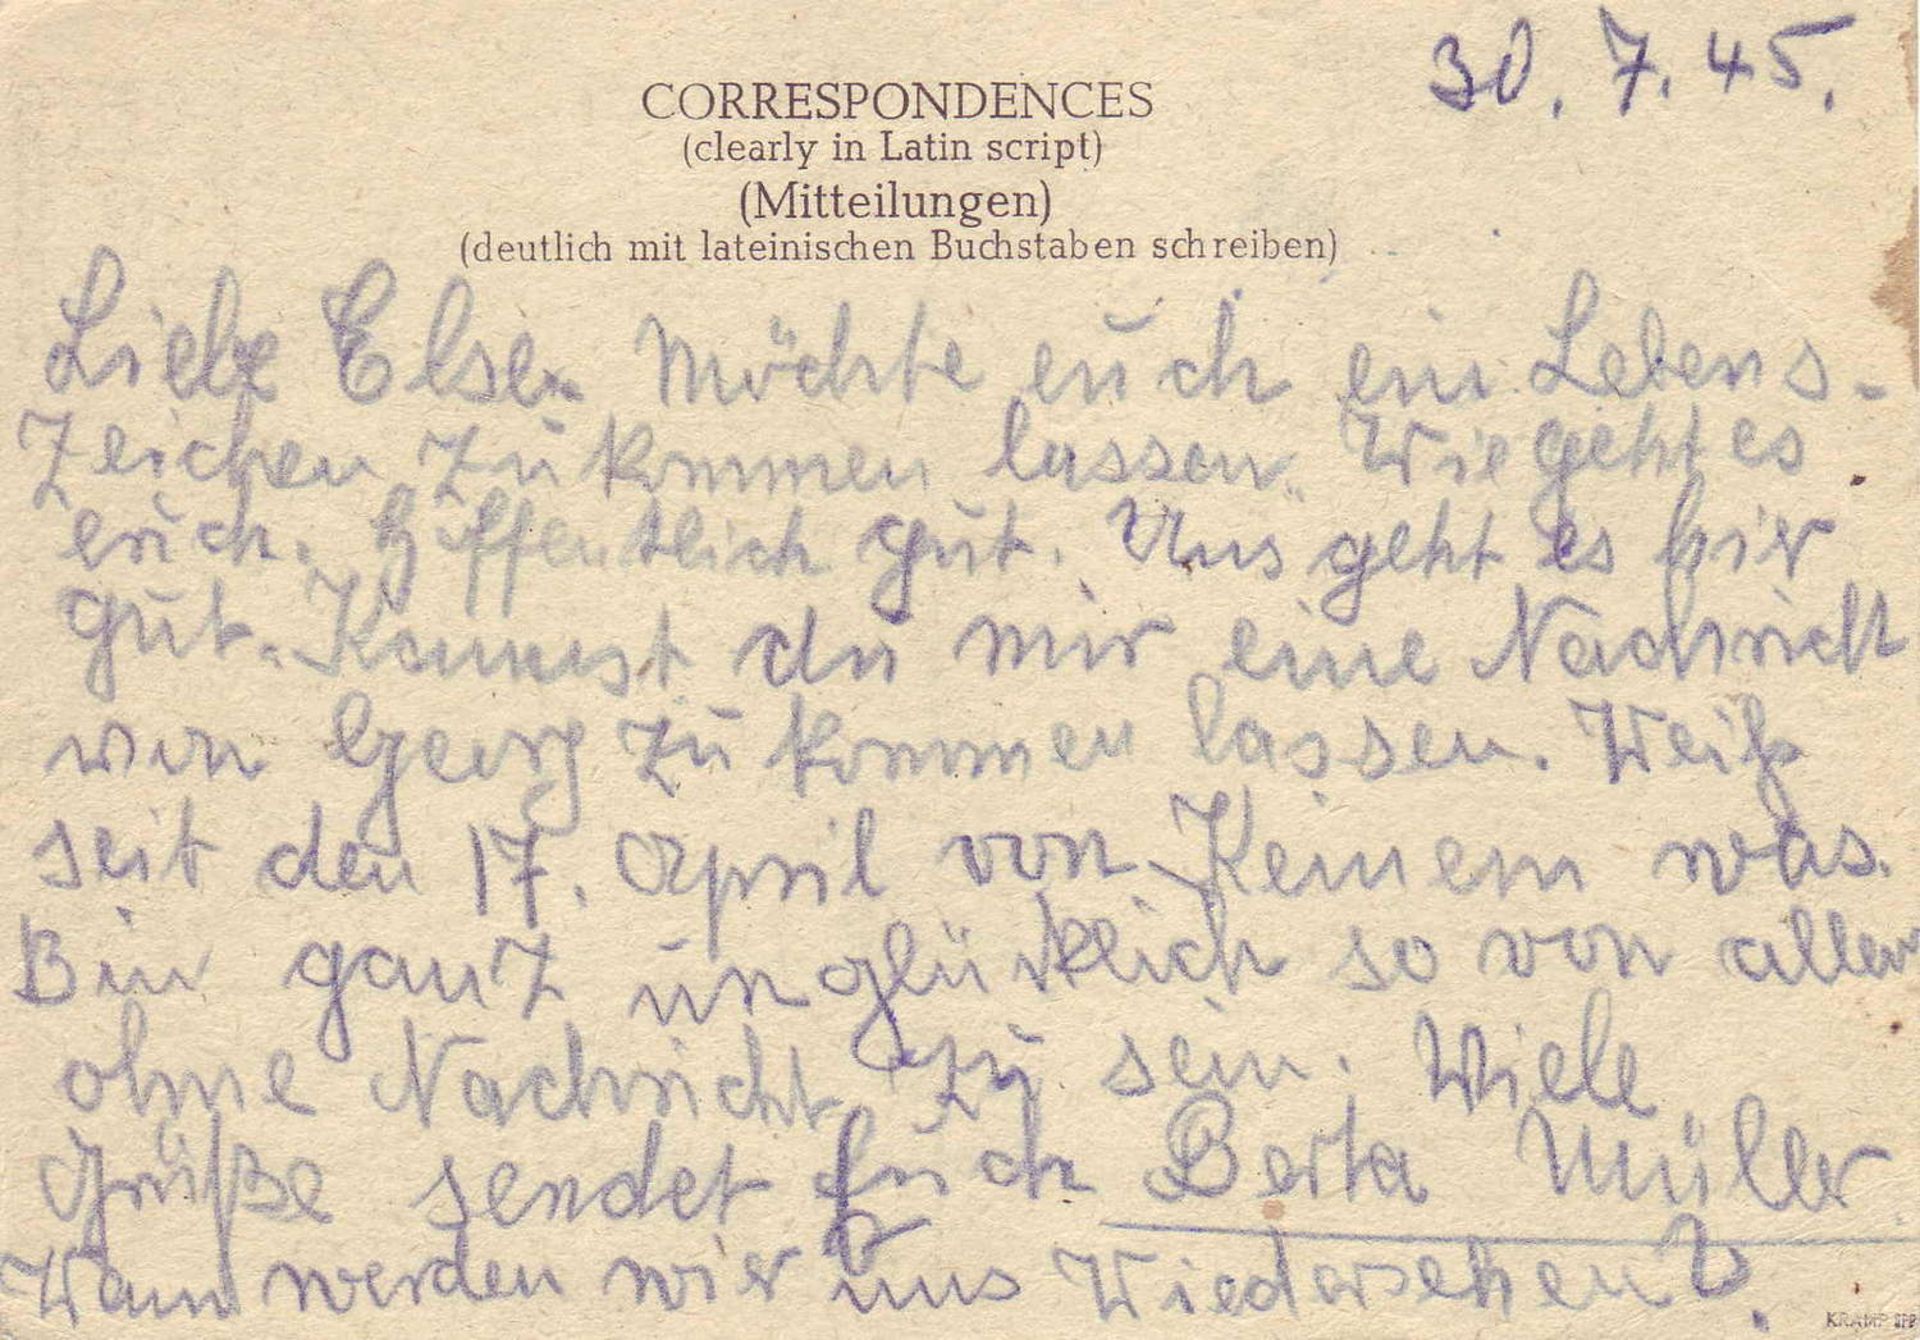 30. 7. 45.
CORRESPONDENCES
(clearly in Latin script)
(Mitteilungen)
(deutlich mit lateinischen Buchstaben schreiben)
Liebe Else. Möchte euch ein Lebens-
Zeichen zu kommen lassen. Wie geht es
euch. Hoffentlich gut. Uns geht es hier
gut. Kannst du mir eine Nachricht
von Georg zu kommen lassen. Weiß
seit den 17. April von Keinem was.
Bin ganz unglücklich so von allen
ohne Nachricht zu sein. Viele
Grüße sendet Euch Berta Müller
Wann werden wir uns Wiedersehen?
KRAMP